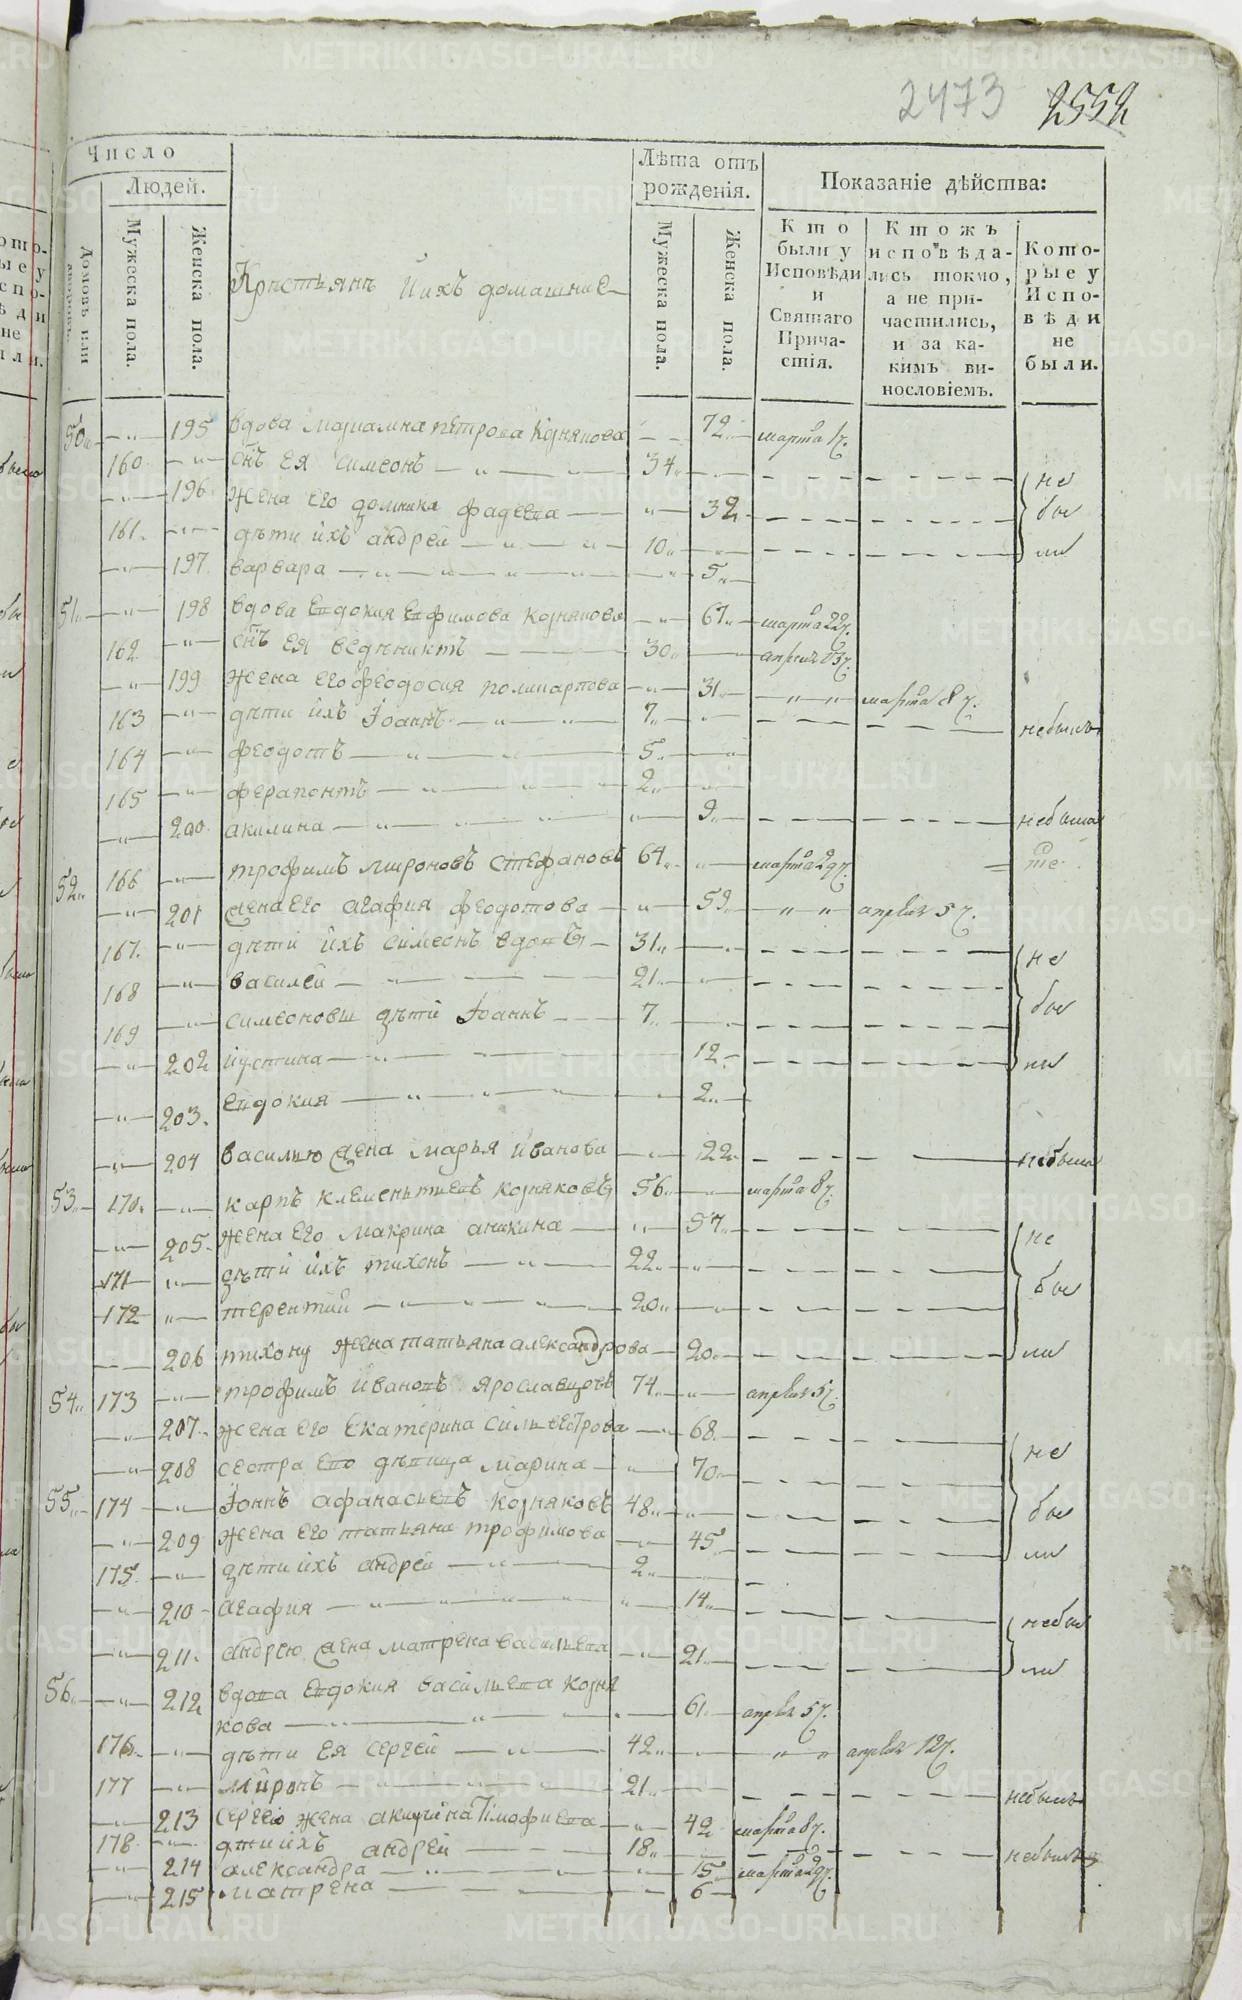 2473 2552
Число
Людей.
Домовъ или
Мужеска пола.
Женска пола.
Крестьянъ и ихъ домашние
Лѣта отъ рожденія.
Мужеска пола.
Женска пола.
Показаніе дѣйства:
Кто были у Исповѣди и Святаго Причастія.
Ктожъ исповѣдались токмо, а не причастились, и за какимъ винословіемъ.
Которые у Исповѣди не были.
50 195 вдова Мариамна петрова Козякова 72 марта 17.
160 снъ ея симеонъ 34 не
196 жена его домника фадѣева 32 бы
161 дѣти ихъ андрей 10 ли
197 варвара 5
51 198 вдова Евдокия Ефимова Козякова 67 марта 22
162 снъ ея ведѣниктъ 30 апреля 3
199 жена его феодосия поликарпова 31 марта 8
163 дѣти ихъ Иоаннъ 7 небылъ
164 феодотъ 5
165 ферапонтъ 2
200 акилина 9 небыла
52 166 трофимъ мироновъ стефановъ 64 марта 29 те
201 жена его агафия феодотова 59 апреля 5
167 дѣти ихъ симеонъ вдовъ 31 не
168 василей 21 бы
169 симеоновы дѣти Иоаннъ 7
202 иустина 12 ли
203 Евдокия 2
204 василью жена марья иванова 22 небыла
53 170 карпъ клементьевъ козяковъ 56 марта 8
205 жена его макрина аникина 57 не
171 дѣти ихъ тихонъ 22 бы
172 терентий 20
206 тихону жена татьяна александрова 20 ли
54 173 трофимъ ивановъ ярославцовъ 74 апреля 5
207 жена его Екатерина сильвестрова 68 не
208 сестра его дѣвица марина 70
55 174 Ионнъ афанасьевъ козяковъ 48 бы
209 жена его татьяна трофимова 45 ли
175 дѣти ихъ андрей 2
210 агафия 14 небы
211 андрею жена матрена васильева 21 ли
56 212 вдова Евдокия васильева козя
кова 61 апреля 5
176 дѣти ея сергей 42 апреля 12
177 миронъ 21 небылъ
213 сергею жена акилина Тимофиева 42 марта 8
178 дѣти ихъ андрей 18 небылъ
214 александра 15 марта 29
215 матрена 6
METRIKI.GASO-URAL.RU